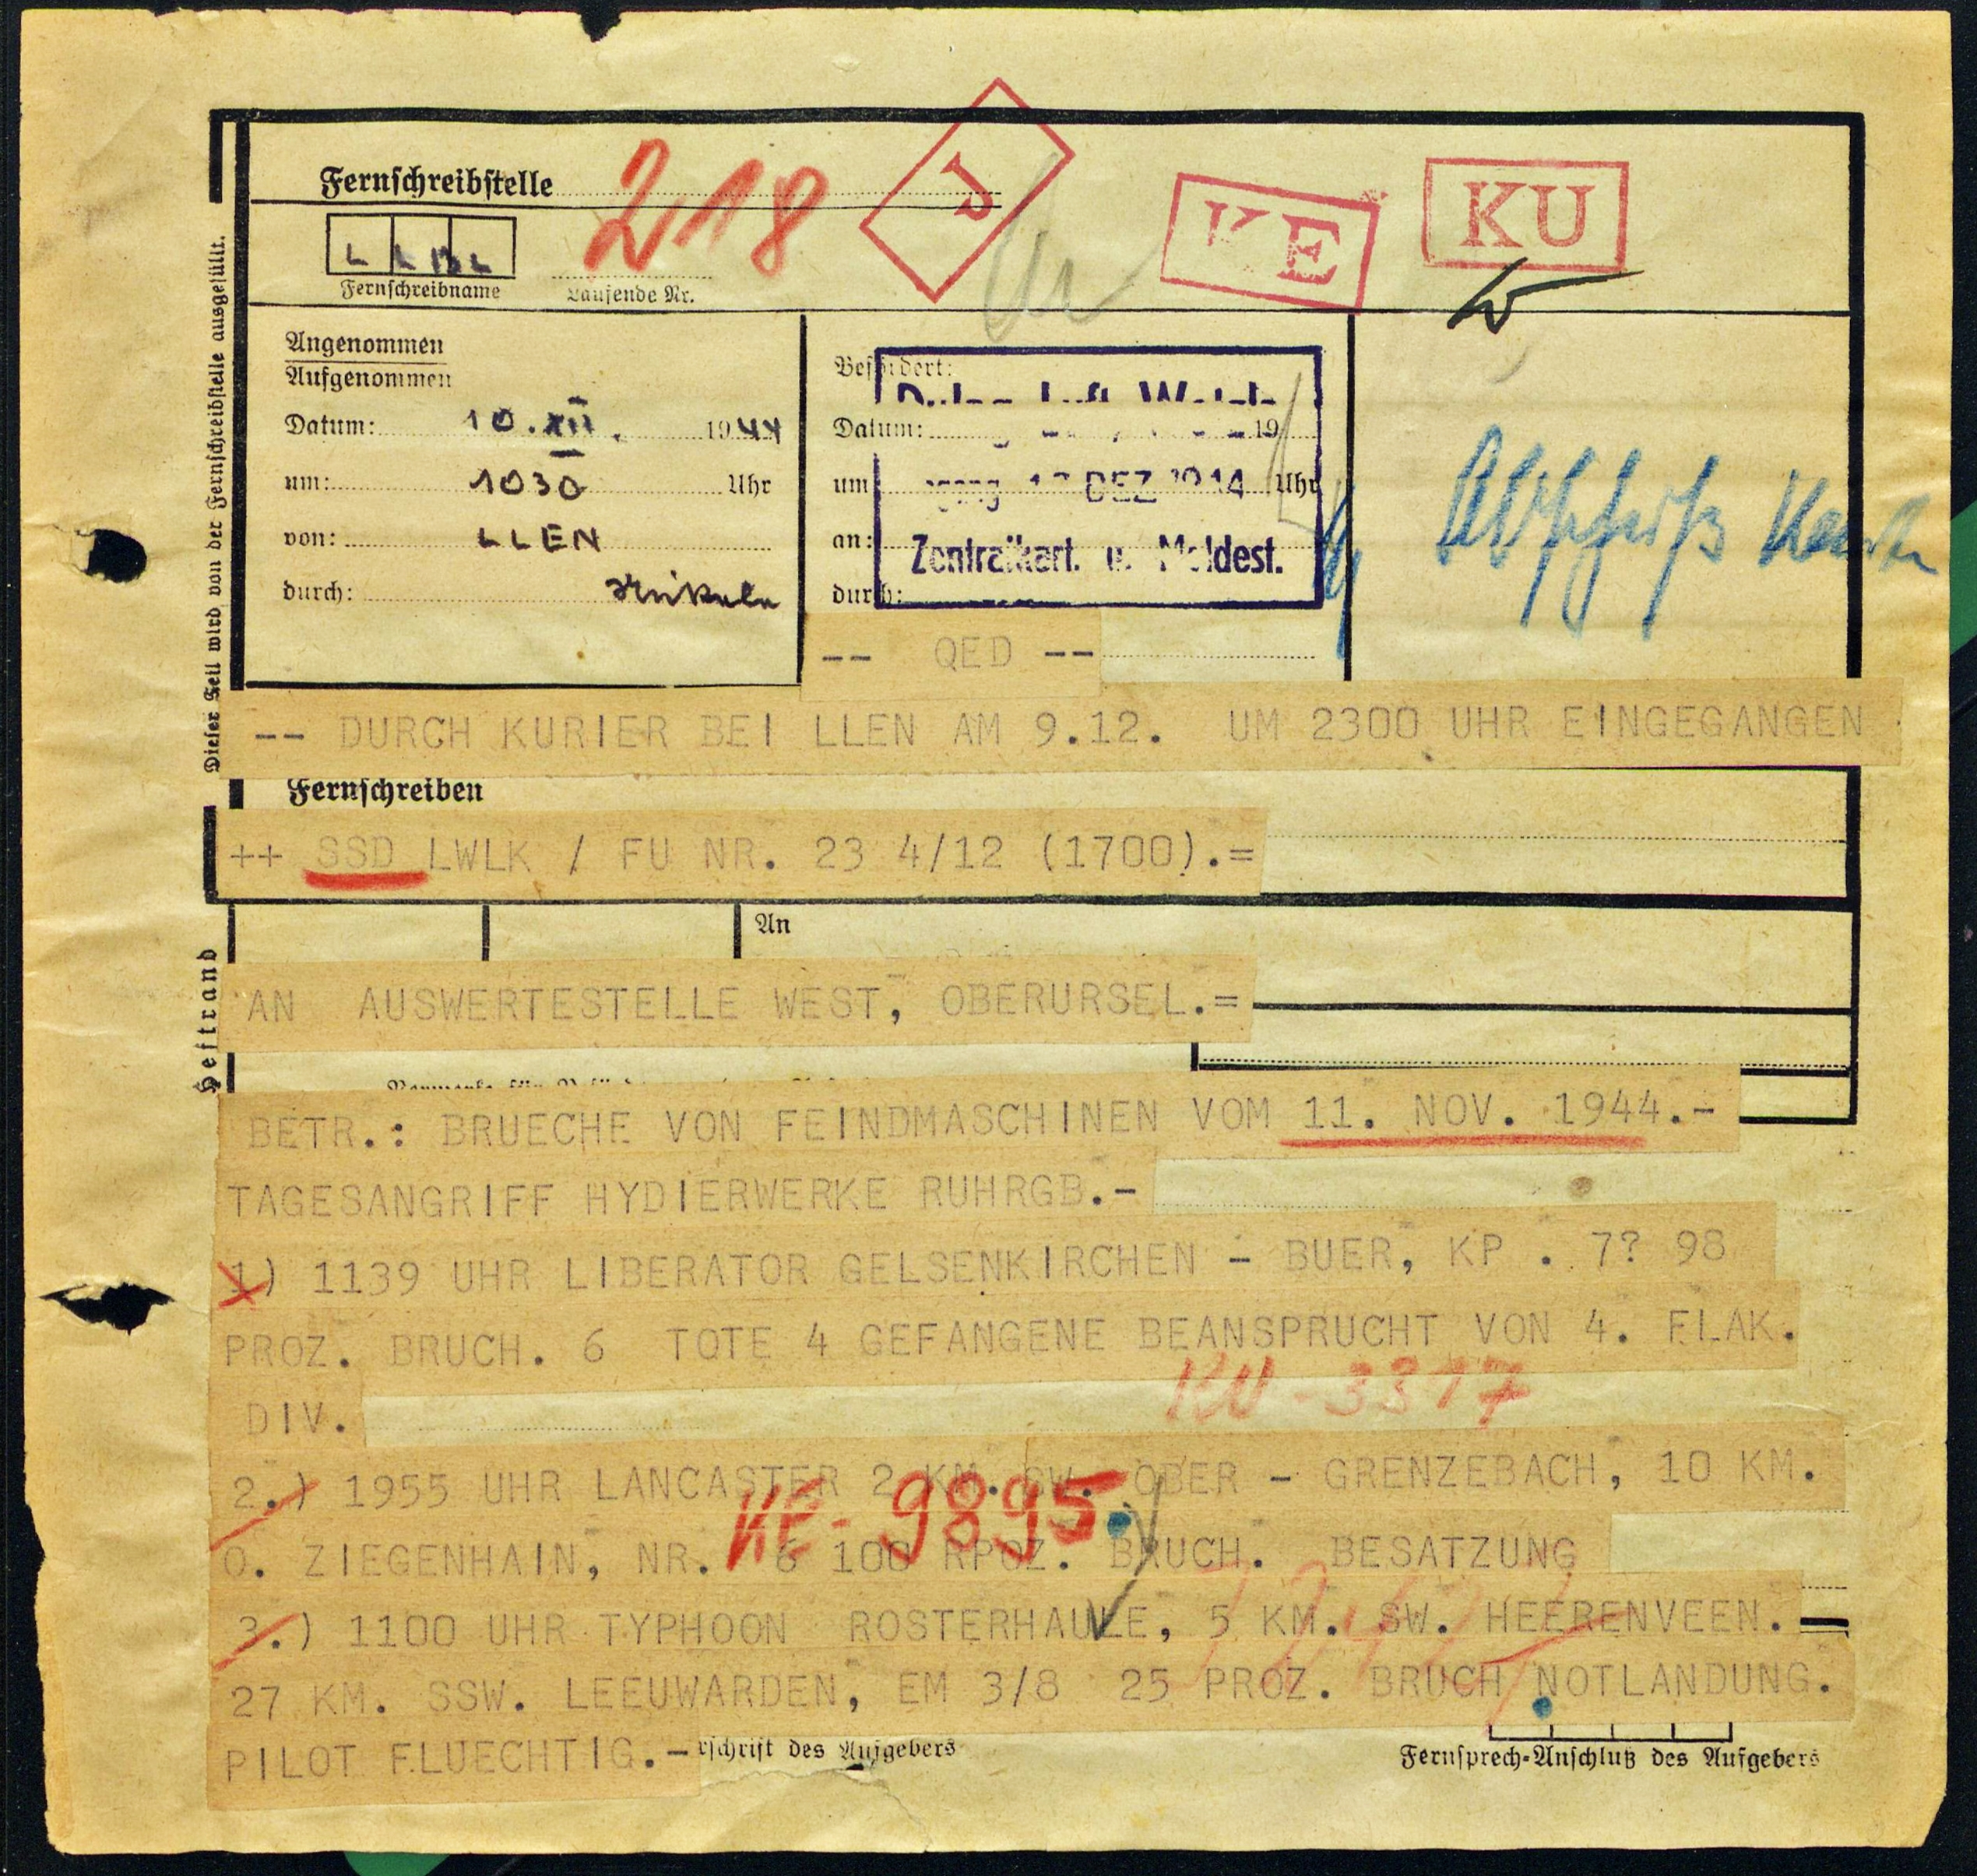 Fernschreibstelle
218
J
KE
KU
L L B L
Fernschreibname
Laufende Nr.
Dieser Teil wird von der Fernschreibstelle ausgefüllt.
Angenommen
Aufgenommen
Datum: 10.XII. 1944
um: 1030 Uhr
von: LLEN
durch:
Befördert:
Datum: 19
um Uhr
DEZ
an:
Zentralkart. u. Meldest.
durch:
-- QED --
-- DURCH KURIER BEI LLEN AM 9.12. UM 2300 UHR EINGEGANGEN
Fernschreiben
++ SSD LWLK / FU NR. 23 4/12 (1700).=
An
Heftrand
AN AUSWERTESTELLE WEST, OBERURSEL.=
BETR.: BRUECHE VON FEINDMASCHINEN VOM 11. NOV. 1944.-
TAGESANGRIFF HYDIERWERKE RUHRGB.-
1) 1139 UHR LIBERATOR GELSENKIRCHEN - BUER, KP . 7? 98
PROZ. BRUCH. 6 TOTE 4 GEFANGENE BEANSPRUCHT VON 4. FLAK.
DIV.
KU-3317
2.) 1955 UHR LANCASTER 2 KM. SW. OBER - GRENZEBACH, 10 KM.
KE-9895
O. ZIEGENHAIN, NR. 6 100 RPOZ. BRUCH. BESATZUNG
3.) 1100 UHR TYPHOON ROSTERHAULE, 5 KM. SW. HEERENVEEN.
27 KM. SSW. LEEUWARDEN, EM 3/8 25 PROZ. BRUCH NOTLANDUNG.
PILOT FLUECHTIG.-
rschrift des Aufgebers
Fernsprech-Anschluß des Aufgebers